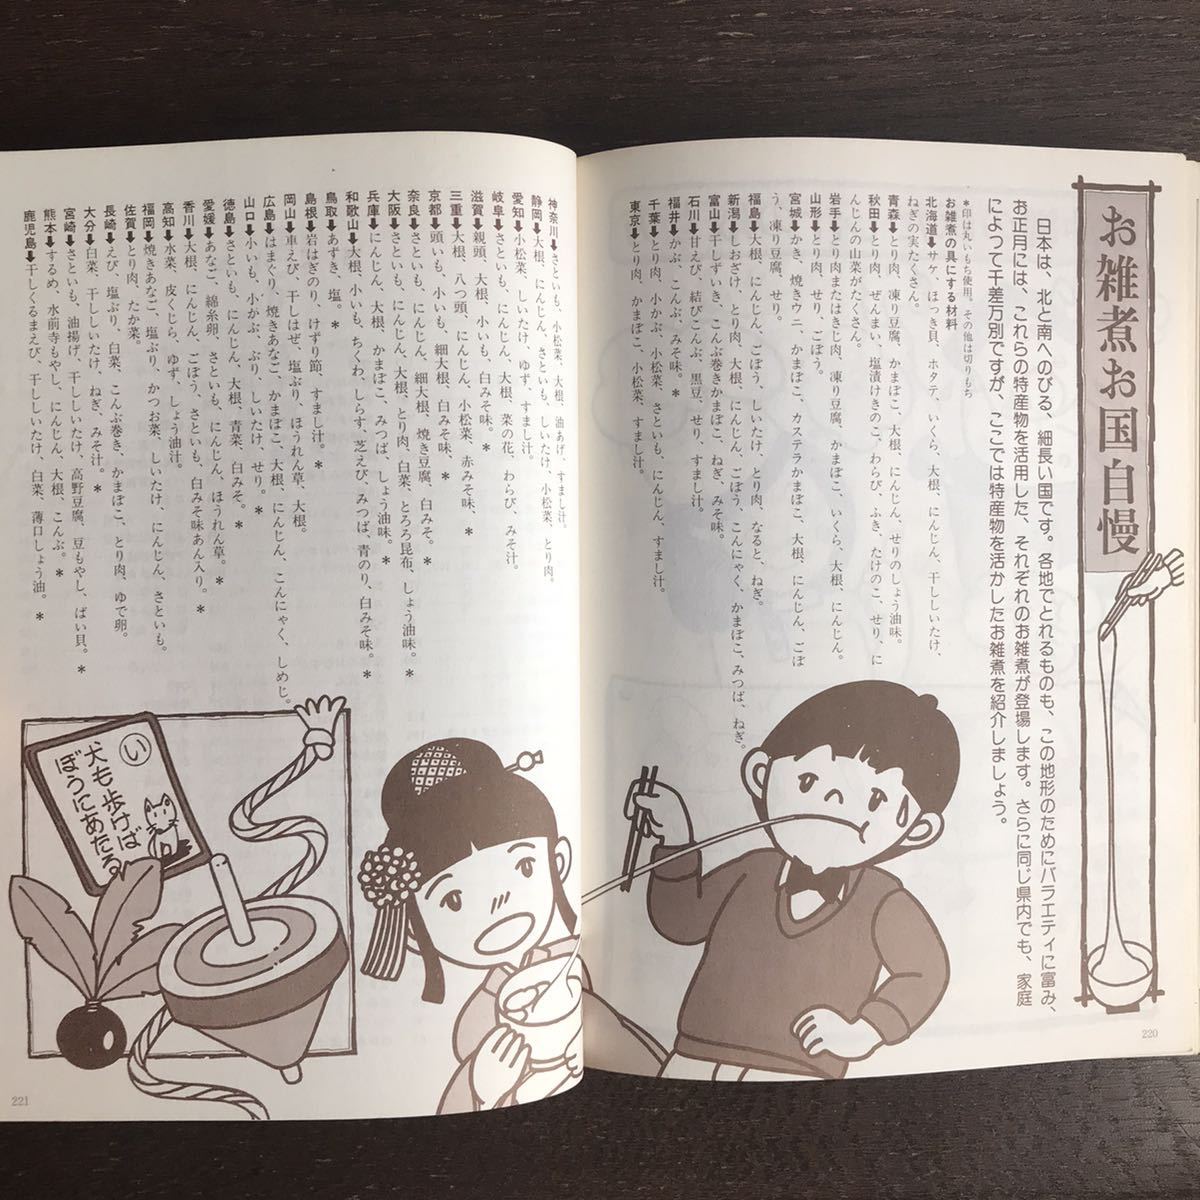 お雑煮お国自慢
日本は、北と南へのびる、細長い国です。各地でとれるものも、この地形のためにバラエティに富み、
お正月には、これらの特産物を活用した、それぞれのお雑煮が登場します。さらに同じ県内でも、家庭
によって千差万別ですが、ここでは特産物を活かしたお雑煮を紹介しましょう。
＊印は丸いもち使用。その他は切りもち
お雑煮の具にする材料
北海道➡サケ、ほっき貝、ホタテ、いくら、大根、にんじん、干ししいたけ、
ねぎの実たくさん。
青森➡とり肉、凍り豆腐、かまぼこ、大根、にんじん、せりのしょう油味。
秋田➡とり肉、ぜんまい、塩漬けきのこ、わらび、ふき、たけのこ、せり、に
んじんの山菜がたくさん。
岩手➡とり肉またはきじ肉、凍り豆腐、かまぼこ、いくら、大根、にんじん。
山形➡とり肉、せり、ごぼう。
宮城➡かき、焼きウニ、かまぼこ、カステラかまぼこ、大根、にんじん、ごぼ
う、凍り豆腐、せり。
福島➡大根、にんじん、ごぼう、しいたけ、とり肉、なると、ねぎ。
新潟➡しおざけ、とり肉、大根、にんじん、ごぼう、こんにゃく、かまぼこ、みつば、ねぎ。
富山➡干しずいき、こんぶ巻きかまぼこ、ねぎ、みそ味。
石川➡甘えび、結びこんぶ、黒豆、せり、すまし汁。
福井➡かぶ、こんぶ、みそ味。＊
千葉➡とり肉、小かぶ、小松菜、さといも、にんじん、すまし汁。
東京➡とり肉、かまぼこ、小松菜、すまし汁。
220
神奈川➡さといも、小松菜、大根、油あげ、すまし汁。
静岡➡大根、にんじん、さといも、しいたけ、小松菜、とり肉。
愛知➡小松菜、しいたけ、ゆず、すまし汁。
岐阜➡さといも、にんじん、大根、菜の花、わらび、みそ汁。
滋賀➡親頭、大根、小いも、白みそ味。＊
三重➡大根、八つ頭、にんじん、小松菜、赤みそ味。
京都➡頭いも、小いも、細大根、白みそ味。＊
奈良➡さといも、にんじん、細大根、焼き豆腐、白みそ。＊
大阪➡さといも、にんじん、大根、とり肉、白菜、とろろ昆布、しょう油味。＊
兵庫➡にんじん、大根、かまぼこ、みつば、しょう油味。＊
和歌山➡大根、小いも、ちくわ、しらす、芝えび、みつば、青のり、白みそ味。＊
鳥取➡あずき、塩。＊
島根➡岩はぎのり、けずり節、すまし汁。＊
岡山➡車えび、干しはぜ、塩ぶり、ほうれん草、大根。
広島➡はまぐり、焼きあなご、かまぼこ、大根、にんじん、こんにゃく、しめじ。
山口➡小いも、小かぶ、ぶり、しいたけ、せり。＊
徳島➡さといも、にんじん、大根、青菜、白みそ。＊
愛媛➡あなご、綿糸卵、さといも、にんじん、ほうれん草。＊
香川➡大根、にんじん、ごぼう、さといも、白みそ味あん入り。＊
高知➡水菜、皮くじら、ゆず、しょう油汁。
福岡➡焼きあなご、塩ぶり、かつお菜、しいたけ、にんじん、さといも。
佐賀➡とり肉、たか菜。
長崎➡えび、塩ぶり、白菜、こんぶ巻き、かまぼこ、とり肉、ゆで卵。
大分➡白菜、干ししいたけ、ねぎ、みそ汁。＊
宮崎➡さといも、油揚げ、干ししいたけ、高野豆腐、豆もやし、ばい貝。＊
熊本➡するめ、水前寺もやし、にんじん、大根、こんぶ。＊
鹿児島➡干しくるまえび、干ししいたけ、白菜、薄口しょう油。＊
い
犬も歩けば
ぼうにあたる
221